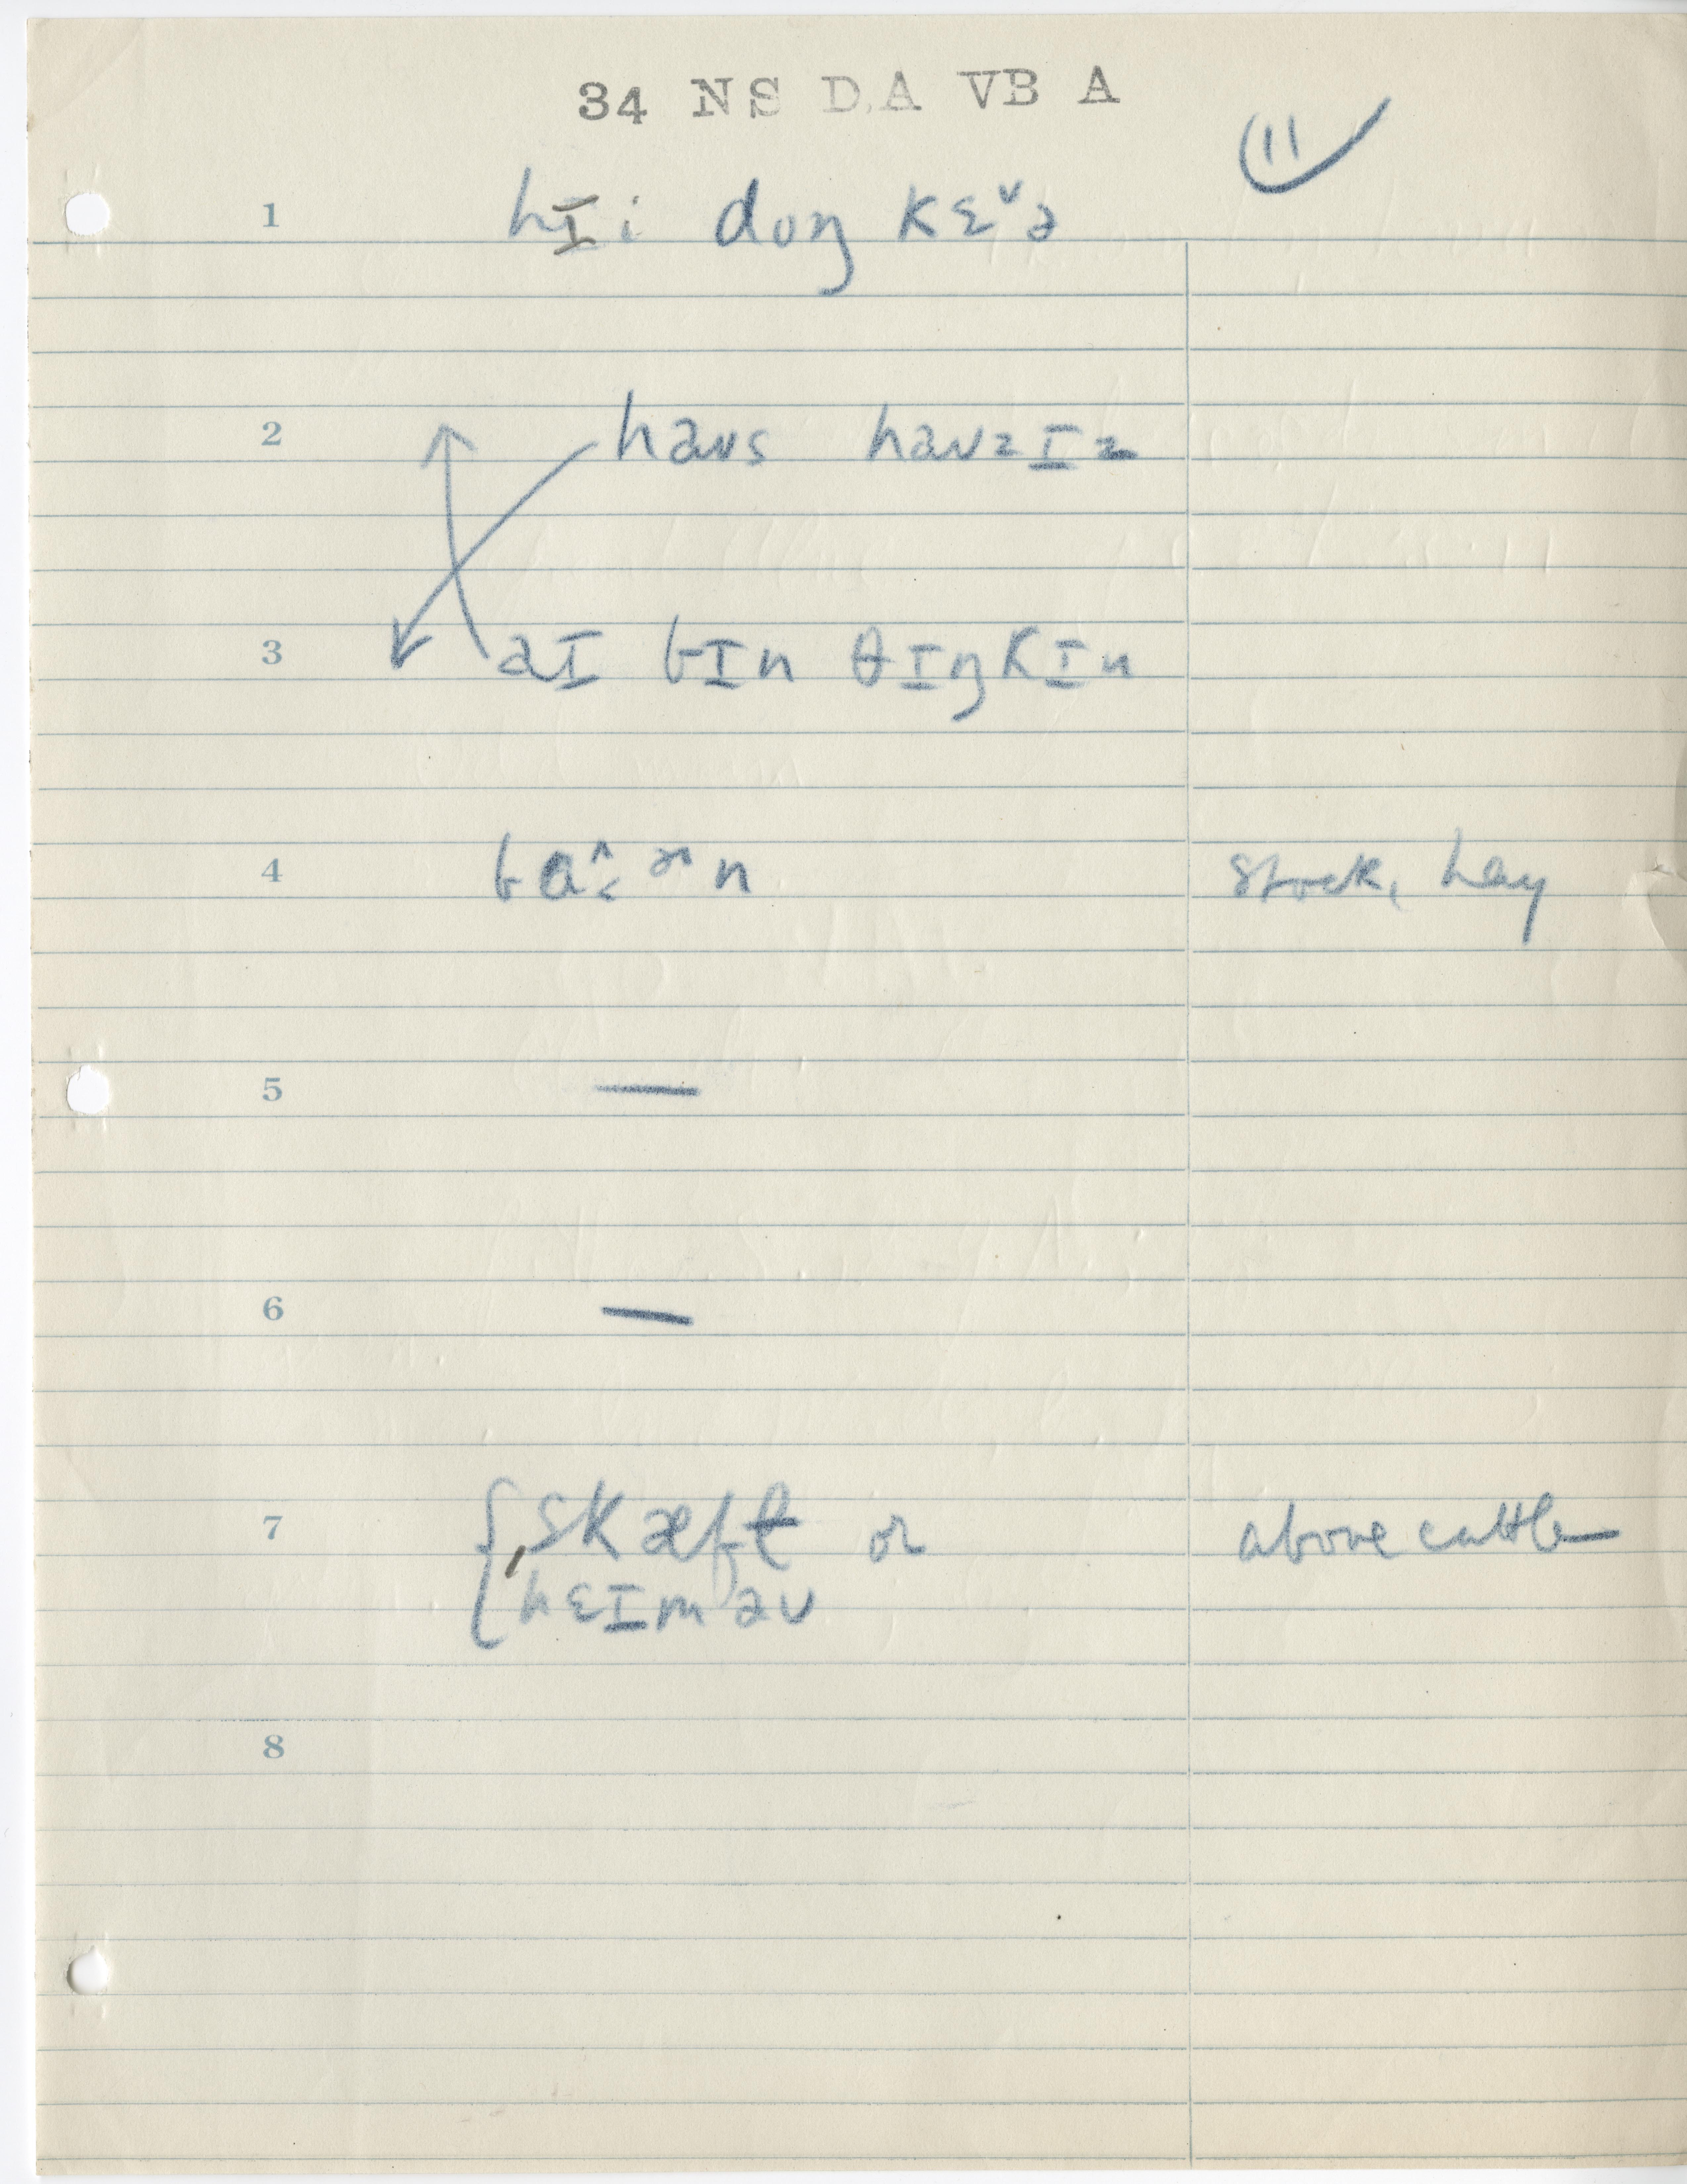 34 NS D.A VB A
11
1 hɪi doŋ kɛ˅ə
2 haʊs haʊzɪz
3 aɪ bɪn θɪŋkɪn
4 ba˄˂ɚn stock, hay
5 —
6 —
7 { skæft or above cattle
hɛɪmaʊ
8